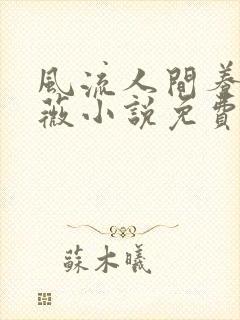 風流人間養
薇小說免費
蘇木曦